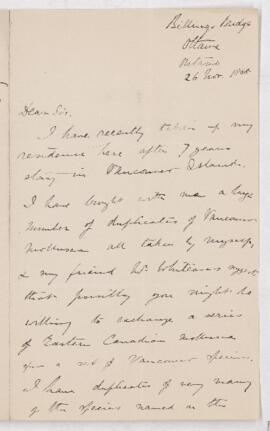 Billings Bridge
Ottawa
Ontario
26 Nov.
Dear Sir,
I have recently taken up my
residence here after 7 years
stay in Vancouver Island.
I have brought with me a large
number of duplicates of Vancouver
mollusca all taken by myself,
& my friend Mr Whiteaves suggests
that possibly you might be
willing to exchange a series
of Eastern Canadian mollusca
upon a set of Vancouver species.
I have duplicates of very many
of the species named in the